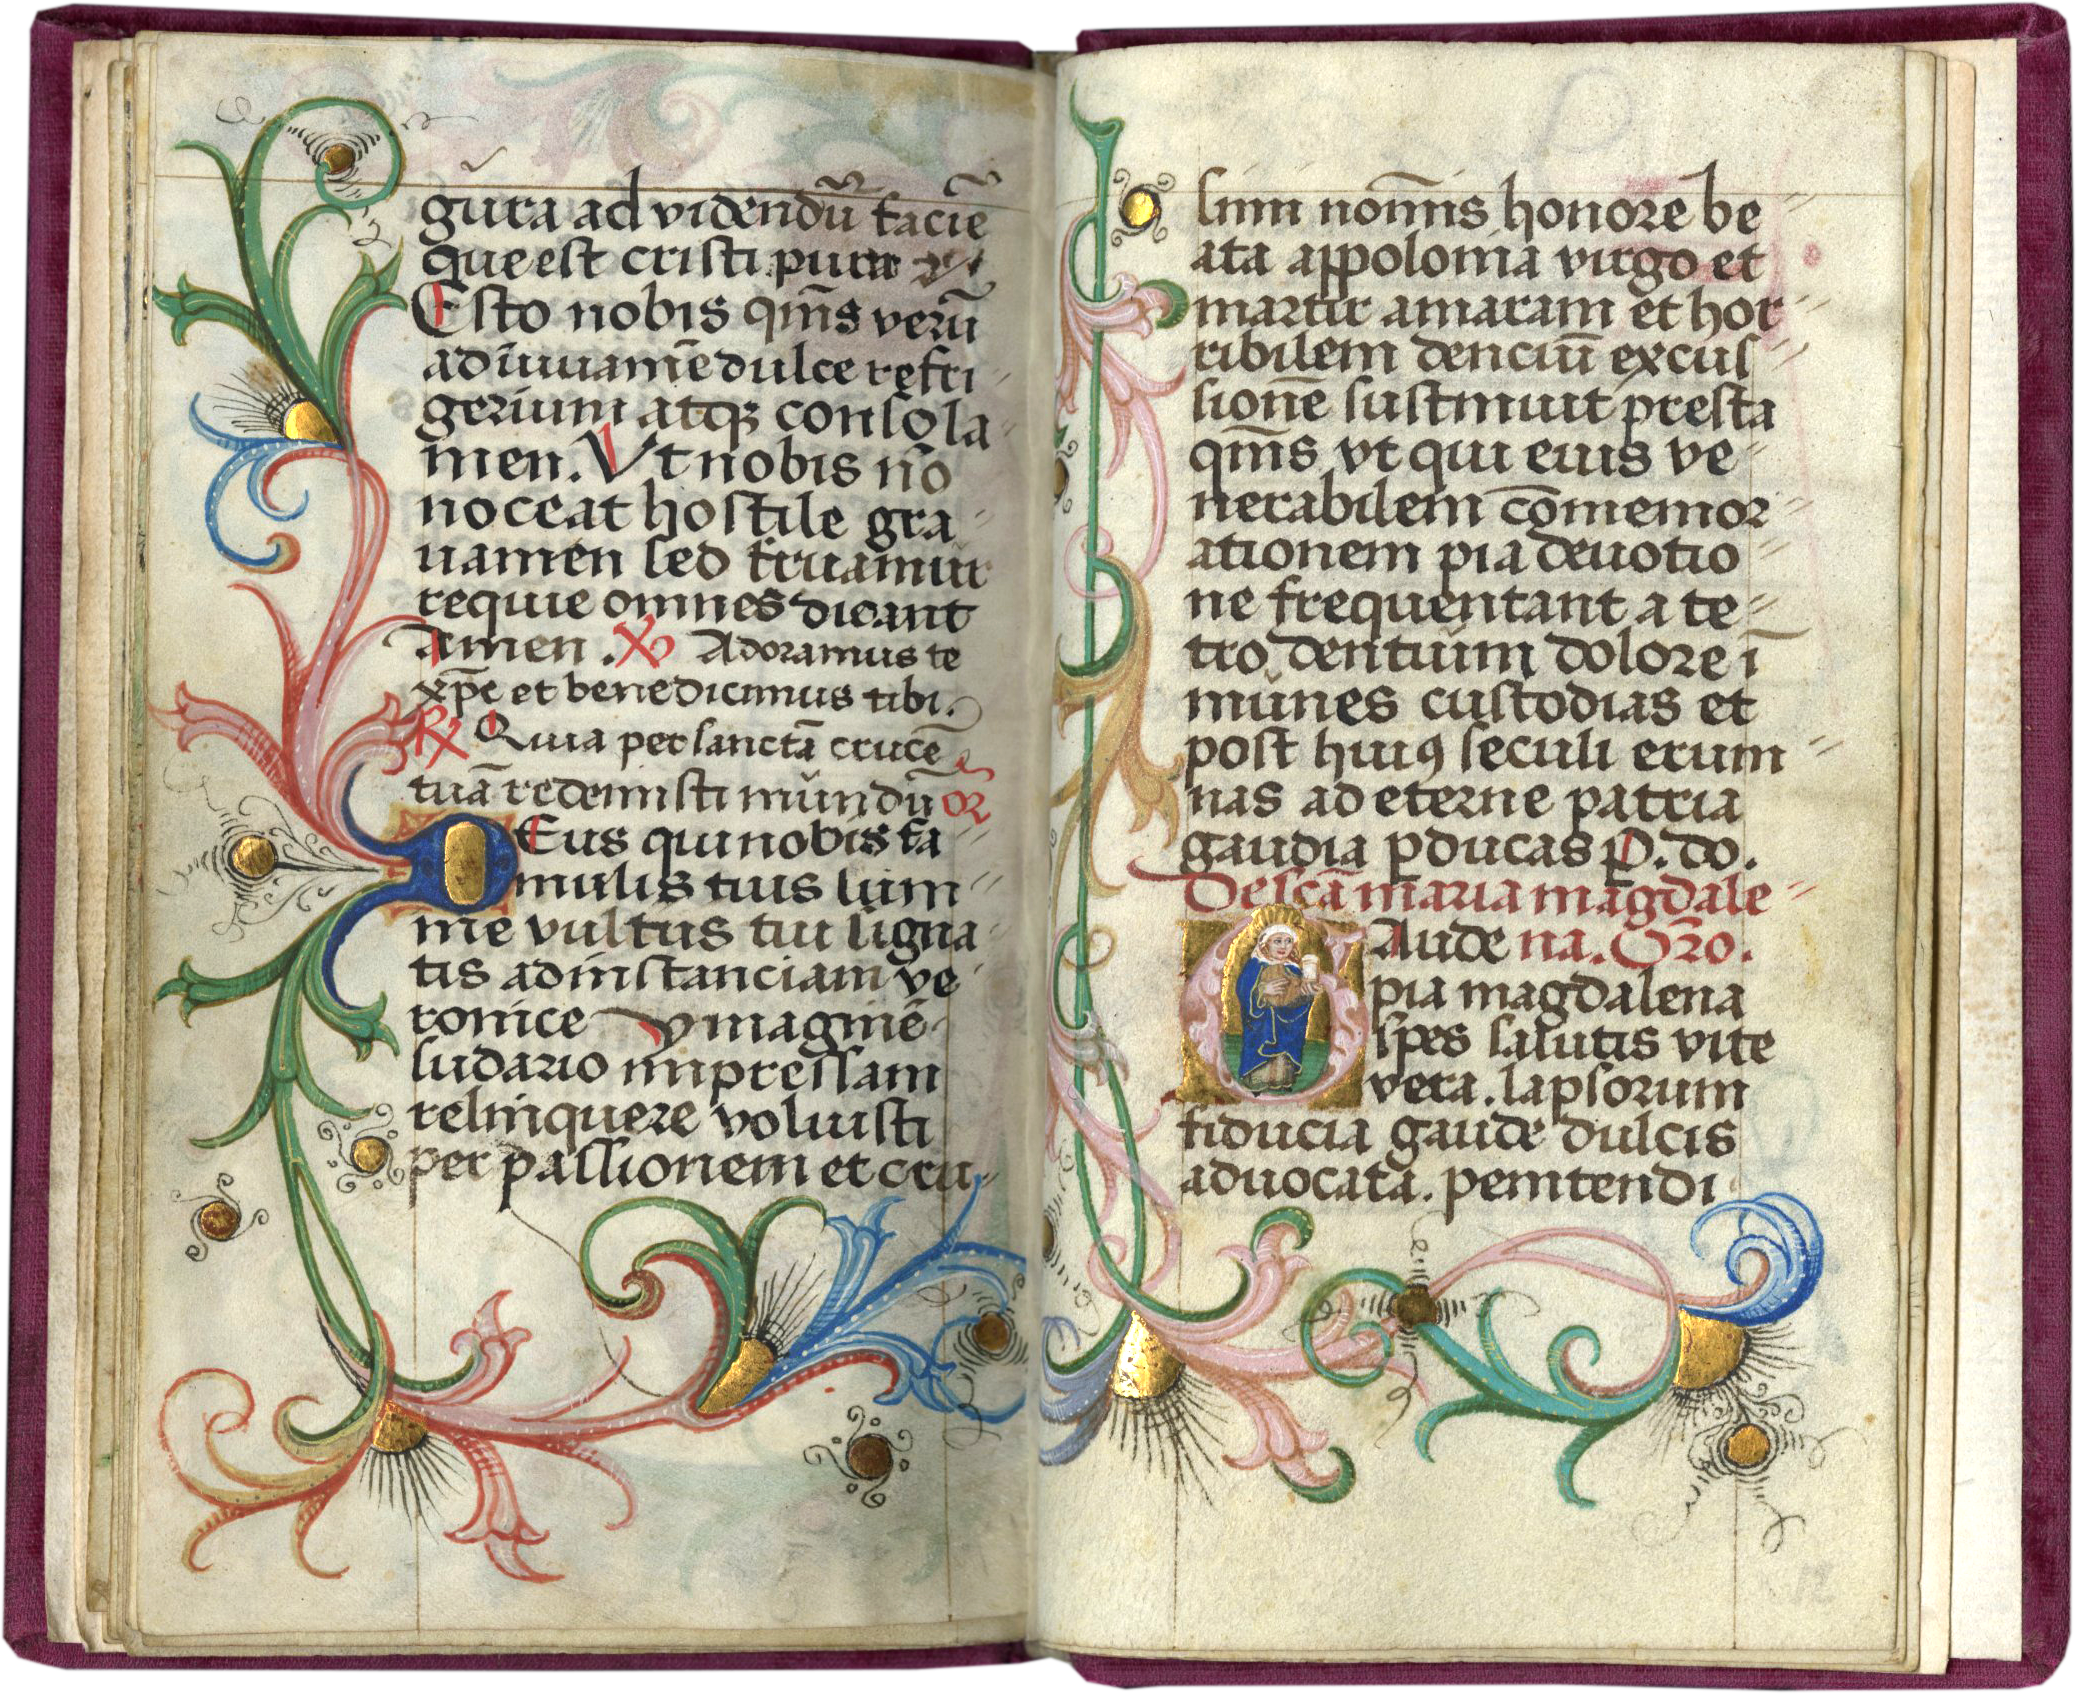 gura ad videndū faciē
que est cristi pura
Esto nobis qm̄s verū
adiuuamē dulce refri
gerium atqꝫ consola
men. Vt nobis nō
noceat hostile gra
uamen sed fruamur
requie omnes dicant
Amen. Adoramus te
xp̄e et benedicimus tibi.
℟ Quia per sanctā crucē
tuā redemisti mūndū or
DEus qui nobis fa
mulis tuis lum
ine vultus tui signa
tis ad instanciam ve
ronice ymaginē
sudario impressam
relinquere voluisti
per passionem et cru
sium nom̄is honore be
ata appolonia virgo et
martir amaram et hor
ribilem denciū excus
sionē sustinuit presta
qm̄s vt qui eius ve
nerabilem cōmemor
ationem pia deuotio
ne frequentant a te
tro dentuim dolore ī
munes custodias et
post huiꝯ seculi erum
nas ad eterne patria
gaudia ꝑducas P. do.
De scā maria magdale
GAude na. Oro.
pia magdalena
spes salutis vite
vera. lapsorum
fiducia gaude dulcis
aduocata. penitendi
12